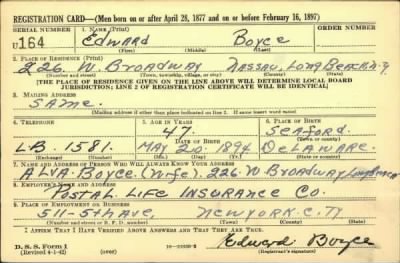 REGISTRATION CARD—(Men born on or after April 28, 1877 and on or before February 16, 1897)
SERIAL NUMBER 1. NAME (Print) ORDER NUMBER
U164 Edward Boyce
(First) (Middle) (Last)
2. PLACE OF RESIDENCE (Print)
226 W. Broadway Nassau, Long Beach N.Y.
(Number and street) (Town, township, village, or city) (County) (State)
[THE PLACE OF RESIDENCE GIVEN ON THE LINE ABOVE WILL DETERMINE LOCAL BOARD
JURISDICTION; LINE 2 OF REGISTRATION CERTIFICATE WILL BE IDENTICAL]
3. MAILING ADDRESS
Same.
[Mailing address if other than place indicated on line 2. If same insert word same]
4. TELEPHONE 5. AGE IN YEARS 6. PLACE OF BIRTH
47. Seaford.
DATE OF BIRTH (Town or county)
LB 1581. May 20 1894 Delaware.
(Exchange) (Number) (Mo.) (Day) (Yr.) (State or country)
7. NAME AND ADDRESS OF PERSON WHO WILL ALWAYS KNOW YOUR ADDRESS
Alva Boyce (Wife). 226 W Broadway Long Beach
8. EMPLOYER'S NAME AND ADDRESS
Postal Life Insurance Co.
9. PLACE OF EMPLOYMENT OR BUSINESS
511-5th Ave. New York. C. NY
(Number and street or R. F. D. number) (Town) (County) (State)
I AFFIRM THAT I HAVE VERIFIED ABOVE ANSWERS AND THAT THEY ARE TRUE.
D. S. S. Form 1
(Revised 4-1-42) (over) Edward Boyce
(Registrant's signature)